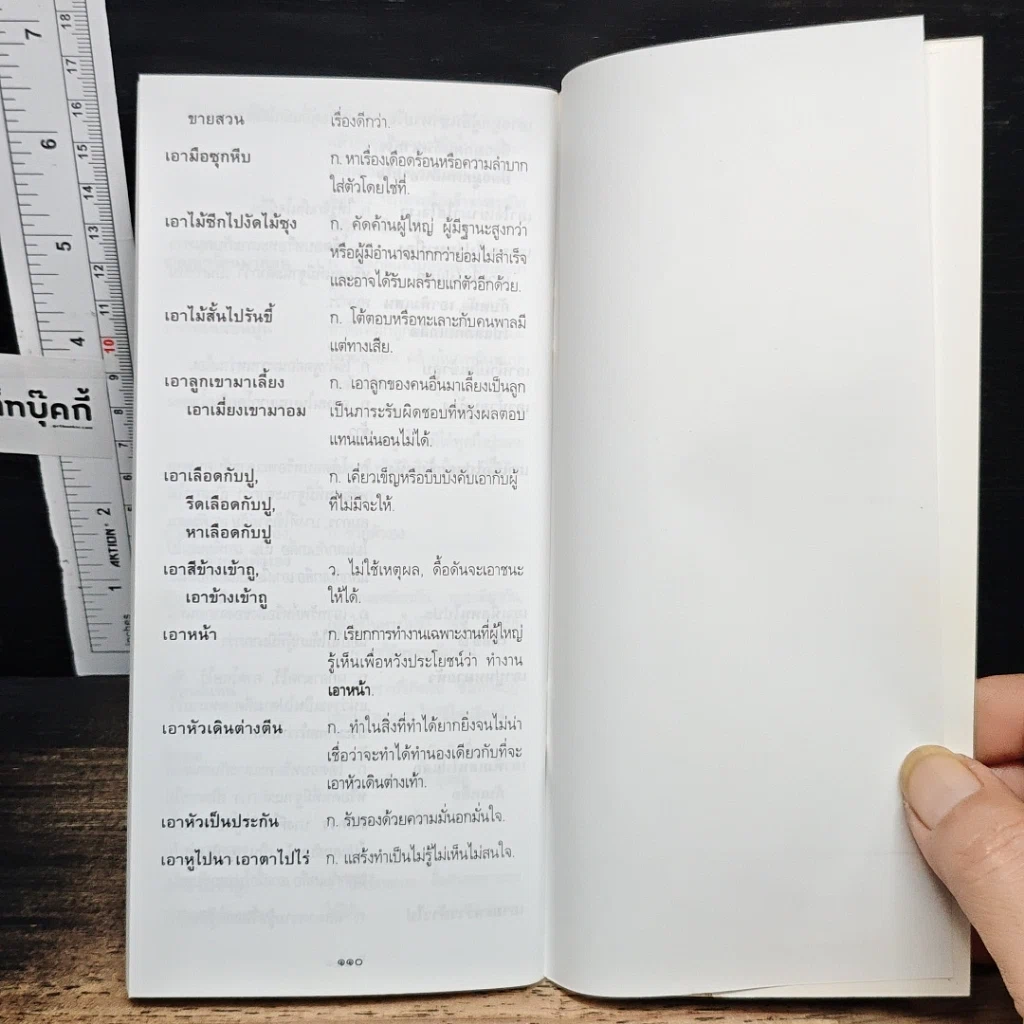 ขายสวน เรื่องดีกว่า.
เอามือซุกหีบ ก. หาเรื่องเดือดร้อนหรือความลำบาก
ใส่ตัวโดยใช่ที่.
เอาไม้ซีกไปงัดไม้ซุง ก. คัดค้านผู้ใหญ่ ผู้มีฐานะสูงกว่า
หรือผู้มีอำนาจมากกว่าย่อมไม่สำเร็จ
และอาจได้รับผลร้ายแก่ตัวอีกด้วย.
เอาไม้สั้นไปรันขี้ ก. โต้ตอบหรือทะเลาะกับคนพาลมี
แต่ทางเสีย.
เอาลูกเขามาเลี้ยง ก. เอาลูกของคนอื่นมาเลี้ยงเป็นลูก
เอาเมี่ยงเขามาอม เป็นภาระรับผิดชอบที่หวังผลตอบ
แทนแน่นอนไม่ได้.
เอาเลือดกับปู, ก. เคี่ยวเข็ญหรือบีบบังคับเอากับผู้
รีดเลือดกับปู, ที่ไม่มีจะให้.
หาเลือดกับปู
เอาสีข้างเข้าถู, ว. ไม่ใช้เหตุผล, ดื้อดันจะเอาชนะ
เอาข้างเข้าถู ให้ได้.
เอาหน้า ก. เรียกการทำงานเฉพาะงานที่ผู้ใหญ่
รู้เห็นเพื่อหวังประโยชน์ว่า ทำงาน
เอาหน้า.
เอาหัวเดินต่างตีน ก. ทำในสิ่งที่ทำได้ยากยิ่งจนไม่น่า
เชื่อว่าจะทำได้ทำนองเดียวกับที่จะ
เอาหัวเดินต่างเท้า.
เอาหัวเป็นประกัน ก. รับรองด้วยความมั่นอกมั่นใจ.
เอาหูไปนา เอาตาไปไร่ ก. แสร้งทำเป็นไม่รู้ไม่เห็นไม่สนใจ.
๑๑๐
7
6
5
4
2
1
inches
AKTION
18
17
16
15
14
13
12
11
10
9
8
7
6